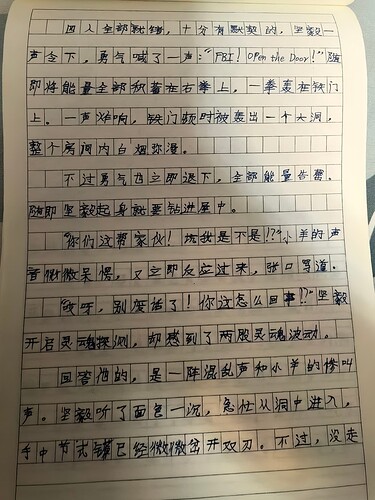 四人全部就绪，十分有默契的，坚毅一
声令下，勇气喊了一声："FBI！OPen the Door！"随
即将能量全部积蓄在右拳上，一拳轰在铁门
上。一声炸响，铁门顿时被轰出一个大洞，
整个房间内白烟弥漫。
不过勇气也立即退下，全部能量告罄。
随即坚毅起身就要钻进屋中。
"你们这帮家伙！坑我是不是！?"小羊的声
音微微呆愣，又立即反应过来，张口骂道。
"哎呀，别废话了！你这怎么回事!?"坚毅
开启灵魂探测，却感到了两股灵魂波动。
回答他的，是一阵混乱声和小羊的惨叫
声。坚毅听了面色一沉，急忙从洞中进入，
手中节式镰已经微微岔开双刃。不过，没走